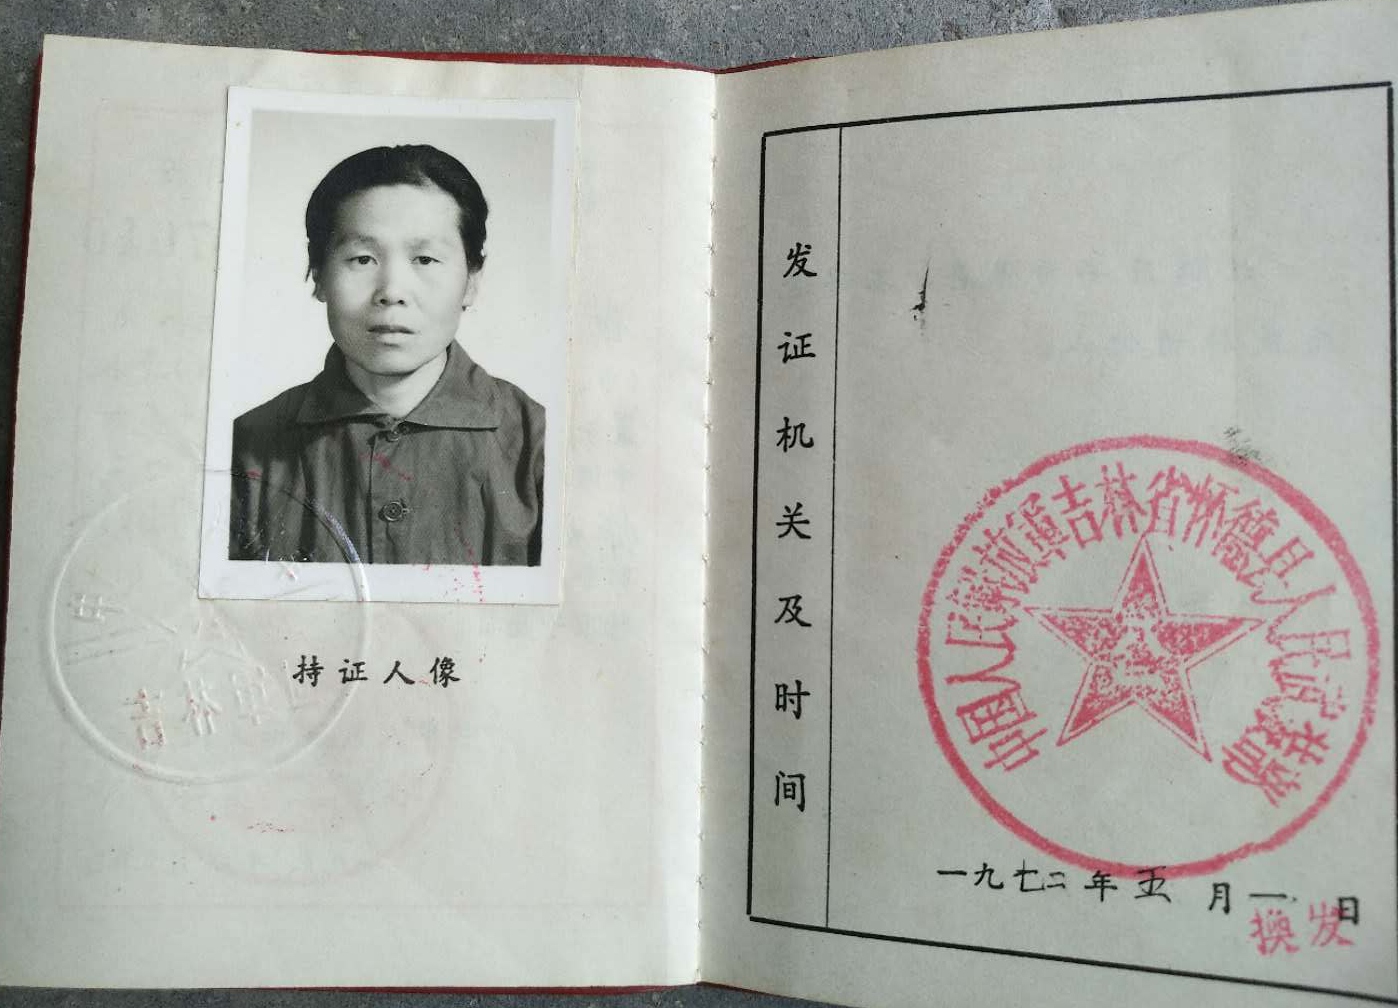 持证人像
吉林
发证机关及时间
中国人民解放军吉林省怀德县人民武装部
一九七二年五月一日
换发